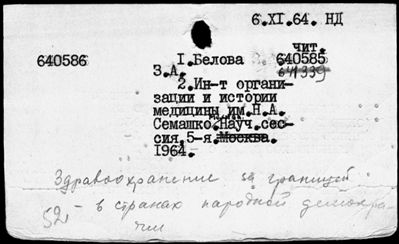 6.XI.64. НД
чит.
640586 1.Белова 640585
З.А.
2.Ин-т органи-
зации и истории
медицины им.Н.А.
Семашко.Науч.сес-
сия,5-я.Москва.
1964.
Здравоохранение за границей
52 - в странах народной демокра-
тии